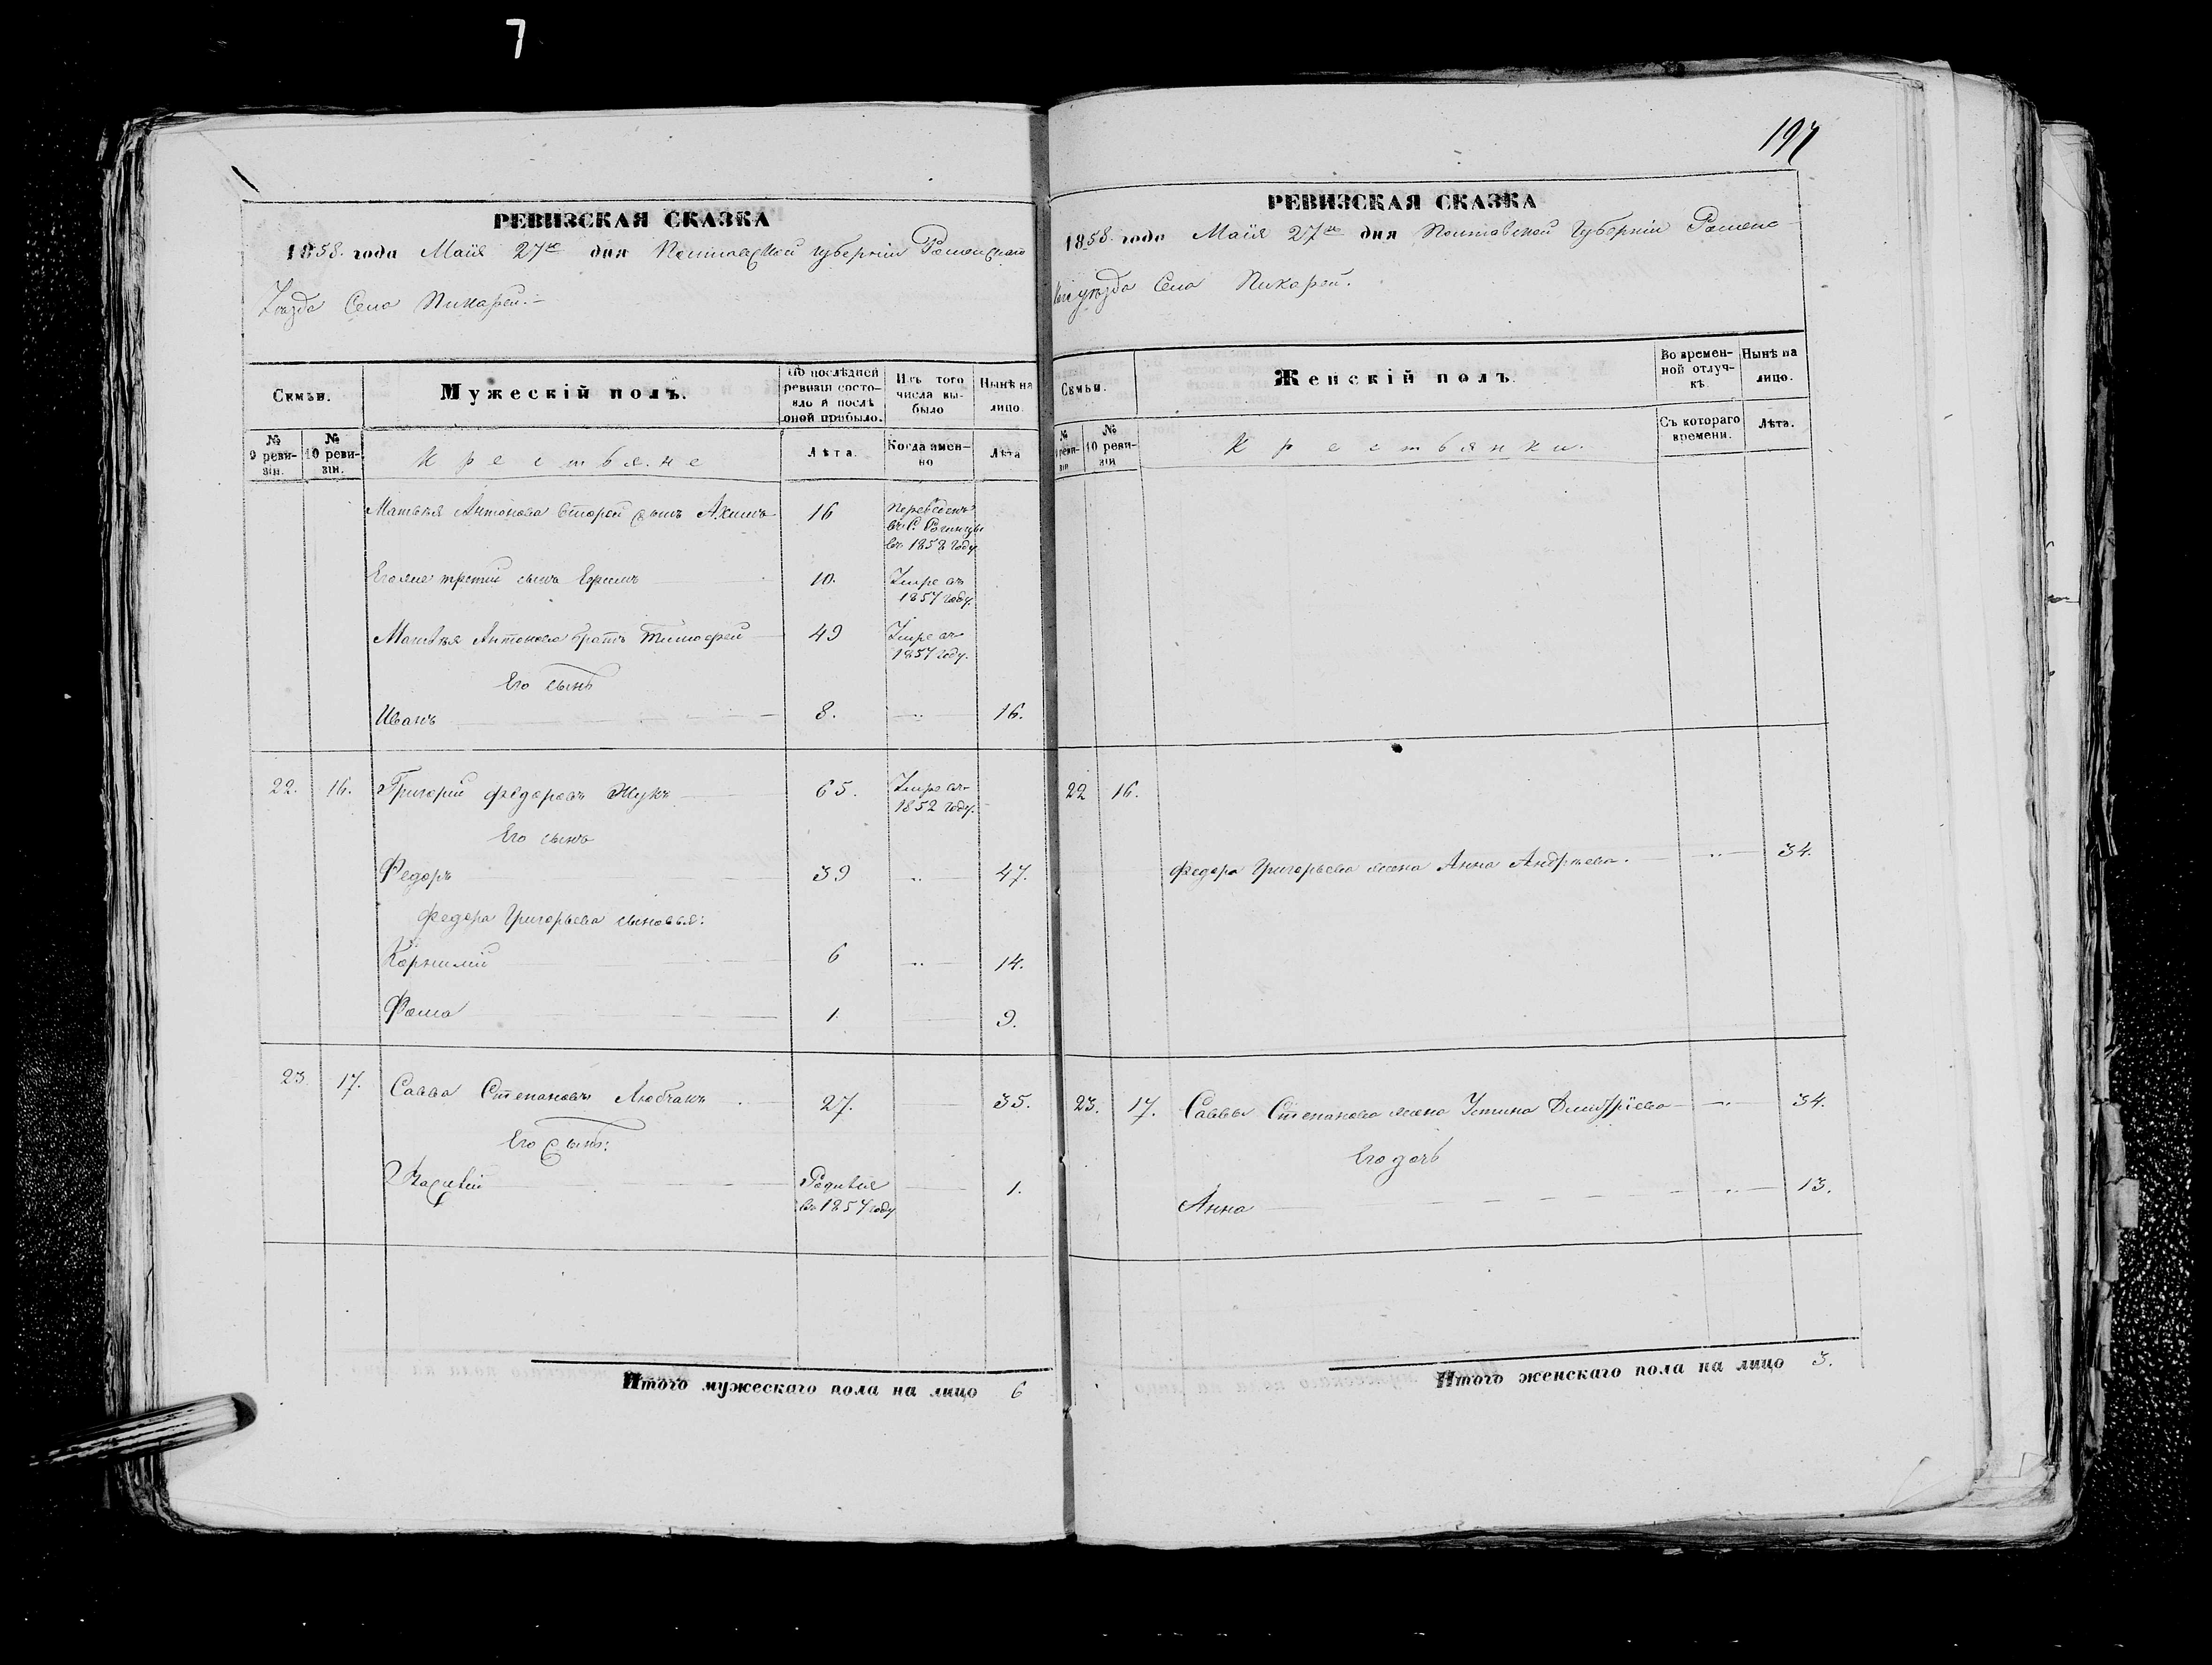 7
РЕВИЗСКАЯ СКАЗКА
1858. года Маія 27го дня Полтавской губерніи Роменскаго
Уѣзда Села Пикарей.
Семьи.
Мужескій полъ.
По послѣдней ревизіи состояло и послѣ оной прибыло.
Изъ того числа выбыло
Нынѣ на лицо.
№ 9 ревизіи.
№ 10 ревизіи.
Крестьяне
Лѣта.
Когда именно
Лѣта
Матвѣя Антонова второй сынъ Акимъ 16 Переведенъ
въ С. 
въ 1858 году
Его же третій сынъ Ефимъ 10. Умре въ
1857 году.
Матвѣя Антонова братъ Тимофей 49 Умре въ
1857 году.
Его сынъ
Иванъ 8. 16.
22. 16. Григорій Федоровъ Жукъ 65. Умре въ
1852 году.
Его сынъ
Федоръ 39 47.
Федора Григорьева сыновья:
Корнилій 6 14.
Фома 1. 9.
23. 17. Савва Степановъ Любчакъ 27. 35.
Его сынъ:
Василій Родился 1.
въ 1857 году
Итого мужескаго пола на лицо 6
197
РЕВИЗСКАЯ СКАЗКА
1858. года Маія 27го дня Полтавской Губерніи Роменс-
каго уѣзда Села Пикарей.
Семьи.
Женскій полъ.
Во временной отлучкѣ.
Нынѣ на лицо.
№ ревизіи
№ 10 ревизіи
Крестьянки.
Съ котораго времени.
Лѣта.
22 16.
Федора Григорьева жена Анна Андреева. 34.
23. 17. Саввы Степанова жена Устина Дмитріева 34.
Его дочь
Анна 13.
Итого женскаго пола на лицо 3.